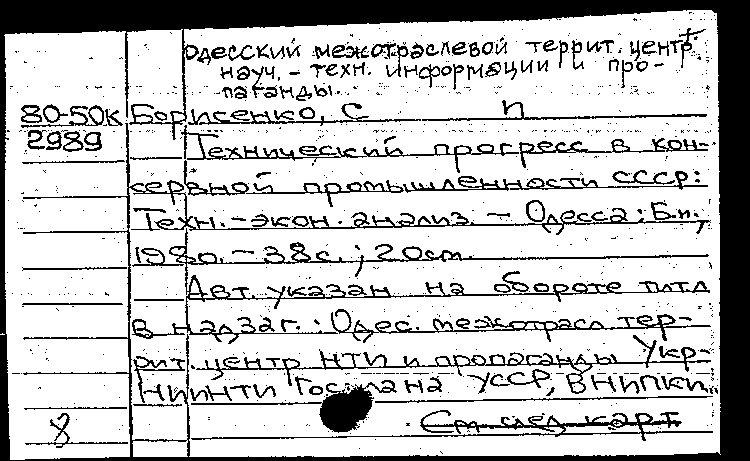 Одесский межотраслевой террит. центр
науч. - техн. информации и про-
паганды.
80-50к Борисенко, С П
2989 Технический прогресс в кон-
сервной промышленности СССР:
Техн.-экон. анализ. - Одесса: Б.и.,
1980. - 38с.; 20см.
Авт. указан на обороте тит.л
в надзаг.: Одес. межотрасл тер-
рит. центр НТИ и пропаганды Укр-
НИИНТИ Госплана УССР, ВНИПКИ..
8 См след карт.